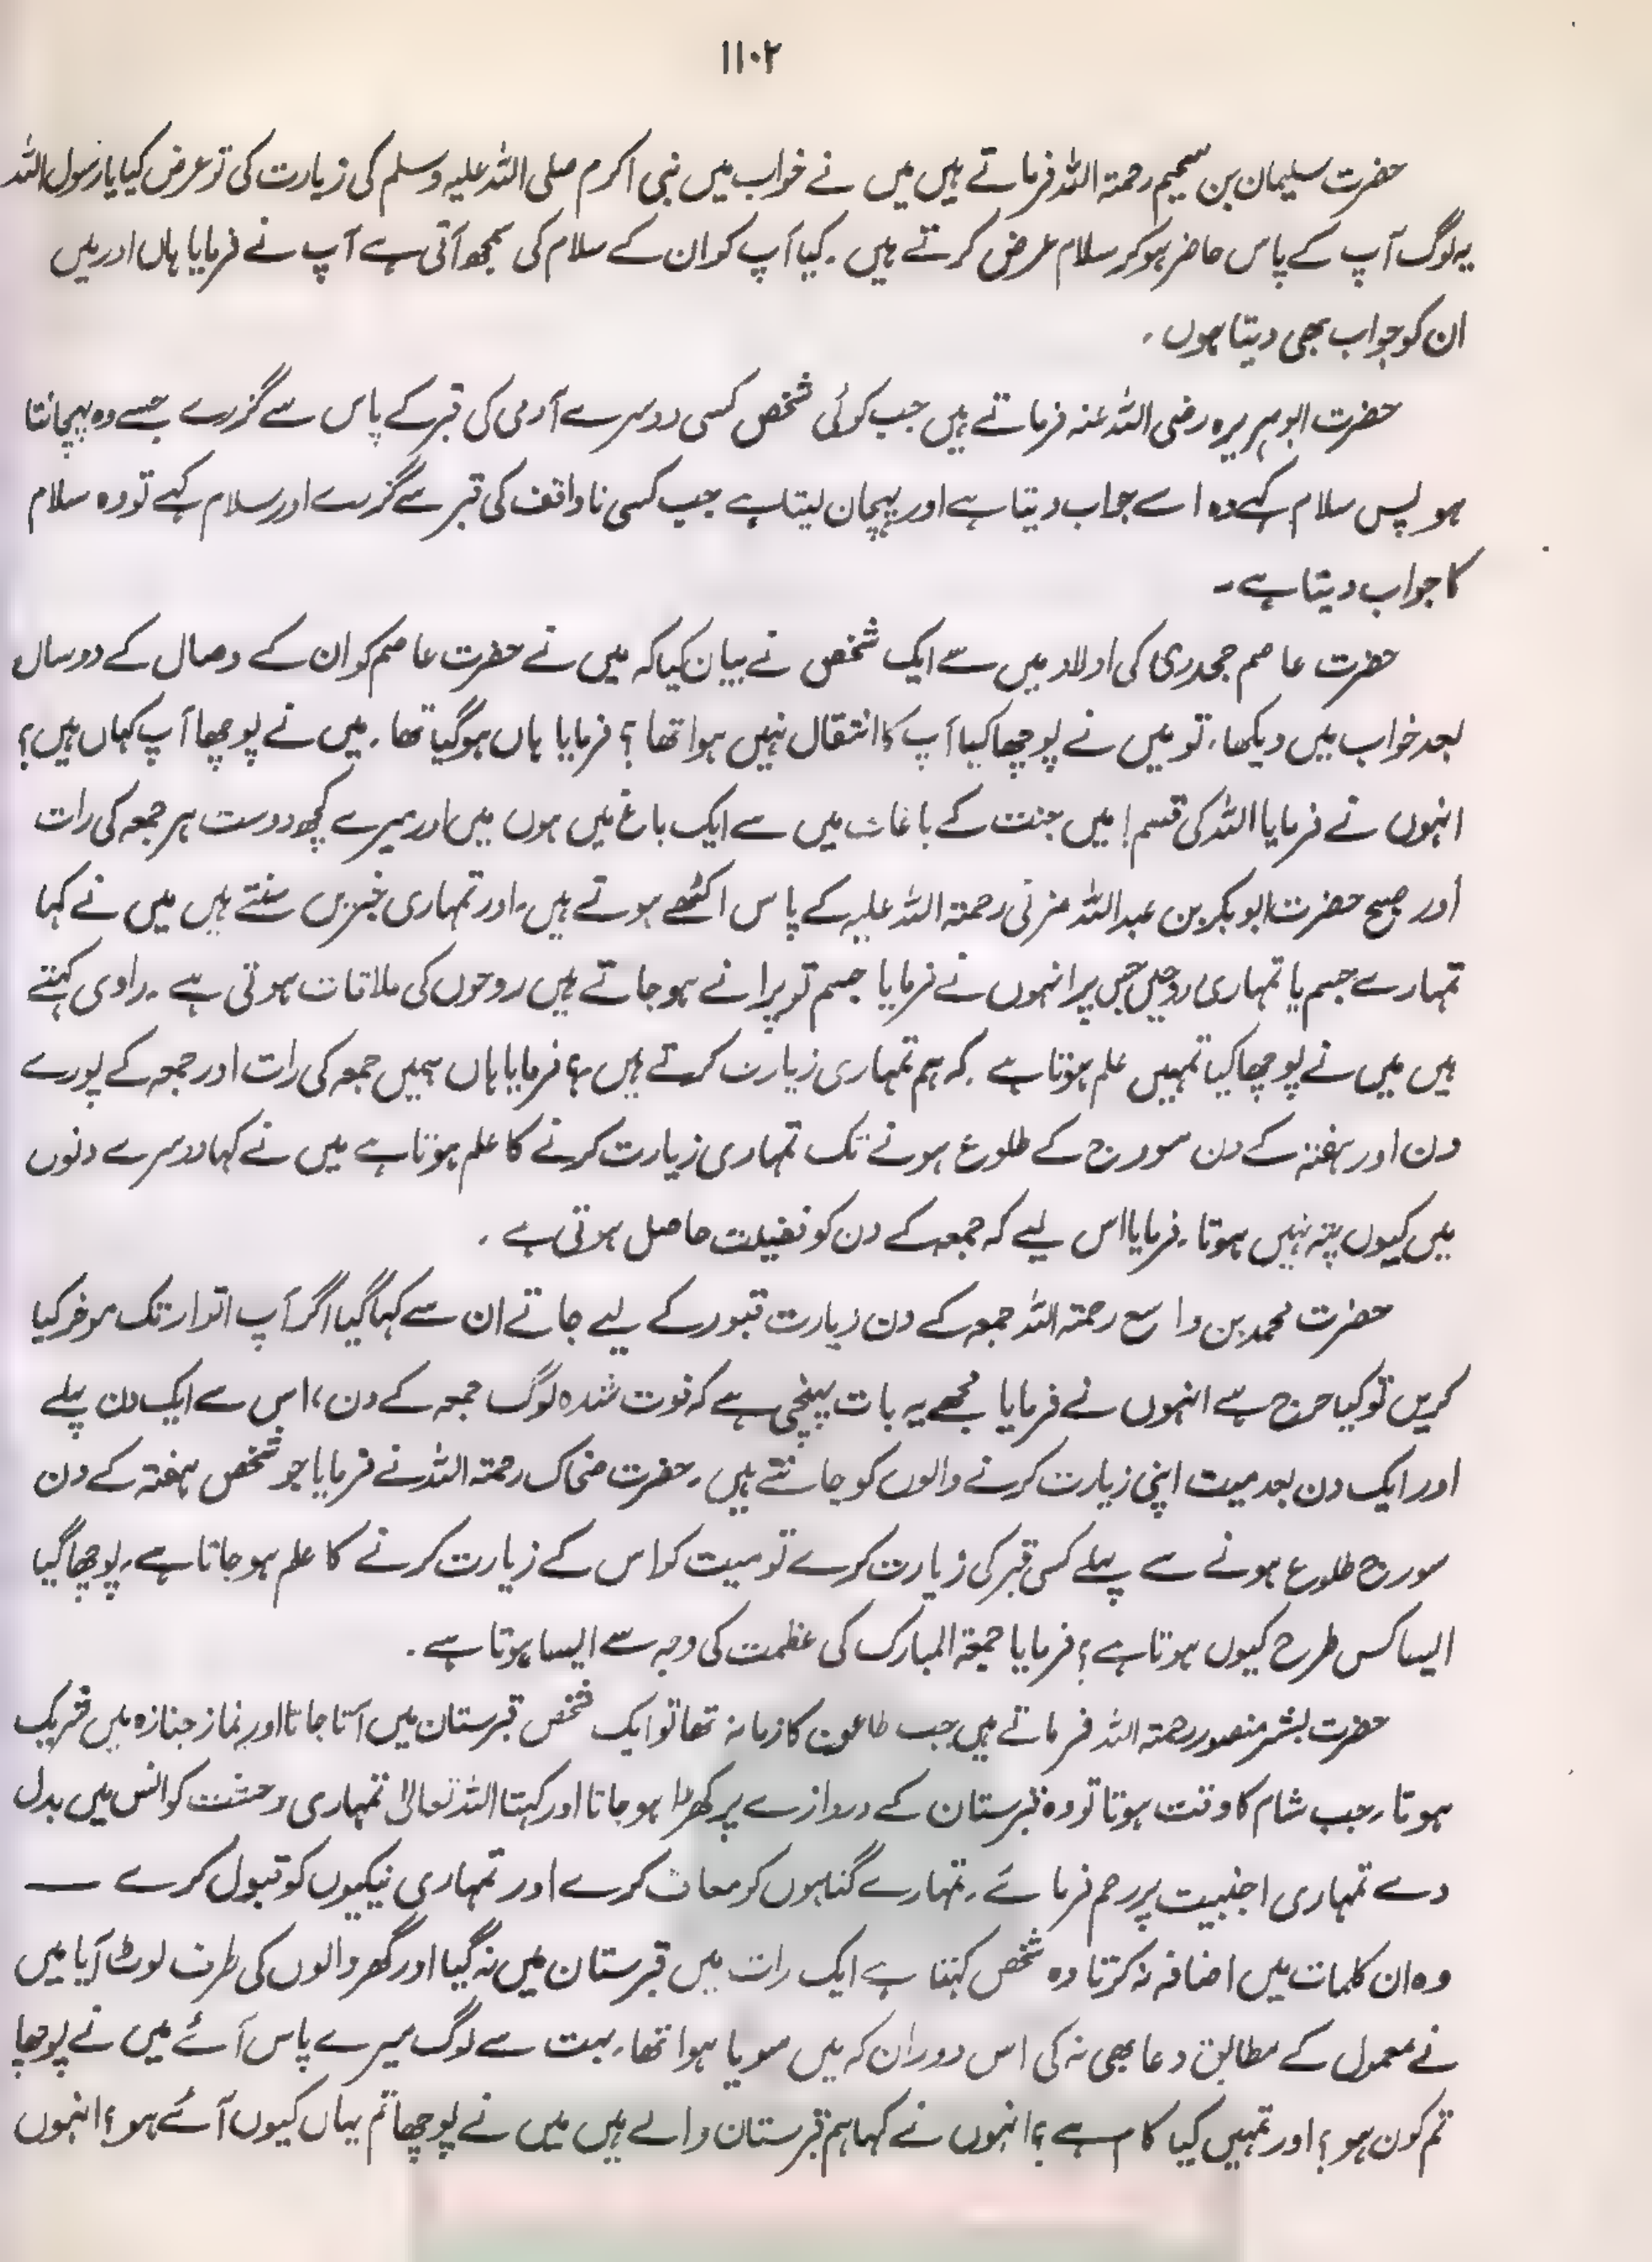 ۱۱۰۲
حضرت سلیمان بن سحیم رحمۃ اللہ فرماتے ہیں میں نے خواب میں نبی اکرم صلی اللہ علیہ وسلم کی زیارت کی تو عرض کیا یا رسول اللہ
یہ لوگ آپ کے پاس حاضر ہو کر سلام عرض کرتے ہیں ۔ کیا آپ کو ان کے سلام کی سمجھ آتی ہے آپ نے فرمایا ہاں اور میں
ان کو جواب بھی دیتا ہوں ۔
حضرت ابو ہریرہ رضی اللہ عنہ فرماتے ہیں جب کوئی شخص کسی دوسرے آدمی کی قبر کے پاس سے گزرے جسے وہ پہچانتا
ہو پس سلام کہے وہ اسے جواب دیتا ہے اور پہچان لیتا ہے جب کسی ناواقف کی قبر سے گزرے اور سلام کہے تو وہ سلام
کا جواب دیتا ہے ۔
حضرت عاصم جحدری کی اولاد میں سے ایک شخص نے بیان کیا کہ میں نے حضرت عاصم کو ان کے وصال کے دو سال
بعد خواب میں دیکھا، تو میں نے پوچھا کیا آپ کا انتقال نہیں ہوا تھا ؟ فرمایا ہاں ہو گیا تھا ۔ میں نے پوچھا آپ کہاں ہیں؟
انہوں نے فرمایا اللہ کی قسم! میں جنت کے باغات میں سے ایک باغ میں ہوں میں اور میرے کچھ دوست ہر جمعہ کی رات
اور صبح حضرت ابو بکر بن عبد اللہ مزنی رحمتہ اللہ علیہ کے پاس اکٹھے ہوتے ہیں ۔ اور تمہاری خبریں سنتے ہیں میں نے کہا
تمہارے جسم یا تمہاری روحیں جس پر انہوں نے فرمایا جسم تو پرانے ہو جاتے ہیں روحوں کی ملاقات ہوتی ہے ۔ راوی کہتے
ہیں میں نے پوچھا کیا تمہیں علم ہوتا ہے کہ ہم تمہاری زیارت کرتے ہیں ؟ فرمایا ہاں ہمیں جمعہ کی رات اور جمعہ کے پورے
دن اور ہفتہ کے دن سورج کے طلوع ہونے تک تمہاری زیارت کرنے کا علم ہوتا ہے میں نے کہا دوسرے دنوں
میں کیوں پتہ نہیں ہوتا ۔ فرمایا اس لیے کہ جمعہ کے دن کو فضیلت حاصل ہوتی ہے ۔
حضرت محمد بن واسع رحمتہ اللہ جمعہ کے دن زیارت قبور کے لیے جاتے ان سے کہا گیا اگر آپ اتوار تک موخر کیا
کریں تو کیا حرج ہے انہوں نے فرمایا مجھے یہ بات پہنچی ہے کہ فوت شدہ لوگ جمعہ کے دن، اس سے ایک دن پہلے
اور ایک دن بعد میت اپنی زیارت کرنے والوں کو جانتے ہیں ۔ حضرت ضحاک رحمتہ اللہ نے فرمایا جو شخص ہفتہ کے دن
سورج طلوع ہونے سے پہلے کسی قبر کی زیارت کرے تو میت کو اس کے زیارت کرنے کا علم ہو جاتا ہے ۔ پوچھا گیا
ایسا کس طرح کیوں ہوتا ہے ؟ فرمایا جمعۃ المبارک کی عظمت کی وجہ سے ایسا ہوتا ہے ۔
حضرت بشر منصور رحمتہ اللہ فرماتے ہیں جب طاعون کا زمانہ تھا تو ایک شخص قبرستان میں آتا جاتا اور نماز جنازہ میں شریک
ہوتا ۔ جب شام کا وقت ہوتا تو وہ قبرستان کے دروازے پر کھڑا ہو جاتا اور کہتا اللہ تعالیٰ تمہاری وحشت کو انس میں بدل
دے تمہاری اجنبیت پر رحم فرمائے ۔ تمہارے گناہوں کو معاف کرے اور تمہاری نیکیوں کو قبول کرے —
وہ ان کلمات میں اضافہ نہ کرتا وہ شخص کہتا ہے ایک رات میں قبرستان میں نہ گیا اور گھر والوں کی طرف لوٹ آیا میں
نے معمول کے مطابق دعا بھی نہ کی اس دوران کہ میں سویا ہوا تھا ۔ بہت سے لوگ میرے پاس آئے میں نے پوچھا
تم کون ہو ؟ اور تمہیں کیا کام ہے ؟ انہوں نے کہا ہم قبرستان والے ہیں میں نے پوچھا تم یہاں کیوں آئے ہو ؟ انہوں